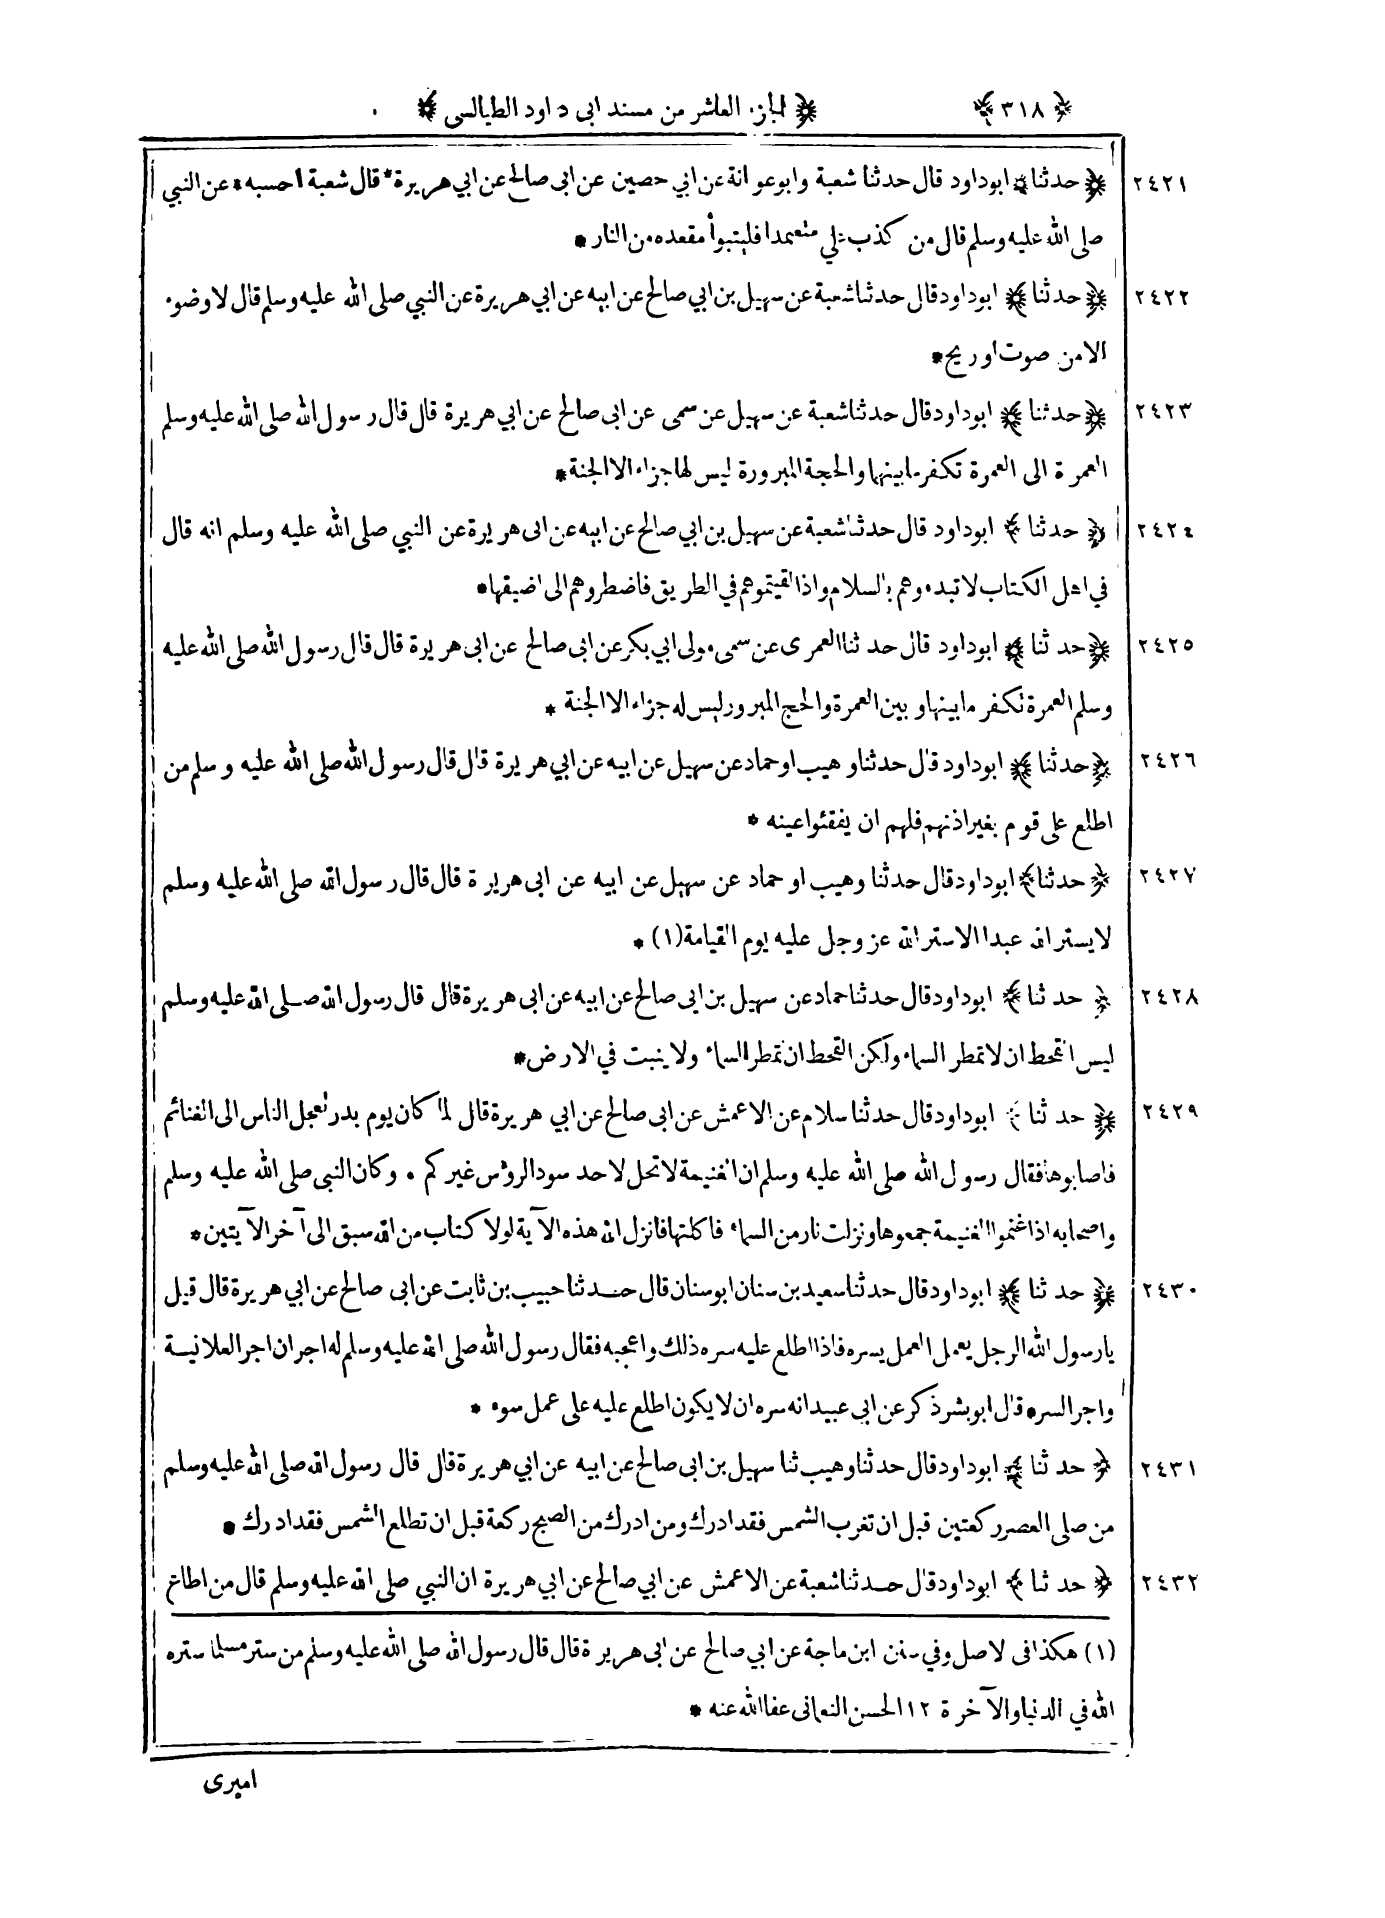 ﴿٣١٨﴾ ﴿الجزء العاشر من مسند ابى داود الطيالسى﴾
٢٤٢١ ﴿حدثنا﴾ ابوداود قال حدثنا شعبة وابوعوانة عن ابي حصين عن ابى صالح عن ابي هريرة* قال شعبة احسبه* عن النبي
صلى الله عليه وسلم قال من كذب علي متعمدا فليتبوأ مقعده من النار*
٢٤٢٢ ﴿حدثنا﴾ ابوداود قال حدثنا شعبة عن سهيل بن ابي صالح عن ابيه عن ابي هريرة عن النبي صلى الله عليه وسلم قال لا وضوء
الا من صوت او ريح*
٢٤٢٣ ﴿حدثنا﴾ ابوداود قال حدثنا شعبة عن سهيل عن سمى عن ابى صالح عن ابي هريرة قال قال رسول الله صلى الله عليه وسلم
العمرة الى العمرة تكفر ما بينها والحجة المبرورة ليس لها جزاء الا الجنة*
٢٤٢٤ ﴿حدثنا﴾ ابوداود قال حدثنا شعبة عن سهيل بن ابي صالح عن ابيه عن ابى هريرة عن النبي صلى الله عليه وسلم انه قال
في اهل الكتاب لا تبدءوهم بالسلام واذا لقيتموهم في الطريق فاضطروهم الى اضيقها*
٢٤٢٥ ﴿حدثنا﴾ ابوداود قال حدثنا العمرى عن سمى مولى ابي بكر عن ابى صالح عن ابى هريرة قال قال رسول الله صلى الله عليه
وسلم العمرة تكفر ما بينها وبين العمرة والحج المبرور ليس له جزاء الا الجنة*
٢٤٢٦ ﴿حدثنا﴾ ابوداود قال حدثنا وهيب او حماد عن سهيل عن ابيه عن ابي هريرة قال قال رسول الله صلى الله عليه وسلم من
اطلع على قوم بغير اذنهم فلهم ان يفقئوا عينه*
٢٤٢٧ ﴿حدثنا﴾ ابوداود قال حدثنا وهيب او حماد عن سهيل عن ابيه عن ابى هريرة قال قال رسول الله صلى الله عليه وسلم
لا يستر الله عبدا الا ستر الله عز وجل عليه يوم القيامة(١)*
٢٤٢٨ ﴿حدثنا﴾ ابوداود قال حدثنا حماد عن سهيل بن ابى صالح عن ابيه عن ابى هريرة قال قال رسول الله صلى الله عليه وسلم
ليس القحط ان لا تمطر السماء ولكن القحط ان تمطر السماء ولا ينبت في الارض*
٢٤٢٩ ﴿حدثنا﴾ ابوداود قال حدثنا سلام عن الاعمش عن ابى صالح عن ابي هريرة قال لما كان يوم بدر تعجل الناس الى الغنائم
فاصابوها فقال رسول الله صلى الله عليه وسلم ان الغنيمة لا تحل لاحد سود الرؤس غيركم . وكان النبى صلى الله عليه وسلم
واصحابه اذا غنموا الغنيمة جمعوها ونزلت نار من السماء فاكلتها فانزل الله هذه الآية لولا كتاب من الله سبق الى آخر الآيتين*
٢٤٣٠ ﴿حدثنا﴾ ابوداود قال حدثنا سعيد بن سنان ابوسنان قال حدثنا حبيب بن ثابت عن ابى صالح عن ابي هريرة قال قيل
يا رسول الله الرجل يعمل العمل يسره فاذا اطلع عليه سره ذلك واعجبه فقال رسول الله صلى الله عليه وسلم له اجران اجر العلانية
واجر السر* قال ابو بشر ذكر عن ابى عبيد انه سره ان لا يكون اطلع عليه على عمل سوء*
٢٤٣١ ﴿حدثنا﴾ ابوداود قال حدثنا وهيب ثنا سهيل بن ابى صالح عن ابيه عن ابي هريرة قال قال رسول الله صلى الله عليه وسلم
من صلى العصر ركعتين قبل ان تغرب الشمس فقد ادرك ومن ادرك من الصبح ركعة قبل ان تطلع الشمس فقد ادرك*
٢٤٣٢ ﴿حدثنا﴾ ابوداود قال حدثنا شعبة عن الاعمش عن ابي صالح عن ابي هريرة ان النبي صلى الله عليه وسلم قال من اطاع
(١) هكذا فى لاصل وفي سنن ابن ماجة عن ابي صالح عن ابى هريرة قال قال رسول الله صلى الله عليه وسلم من ستر مسلما ستره
الله في الدنيا والآخرة ١٢ الحسن النعمانى عفا الله عنه*
اميرى